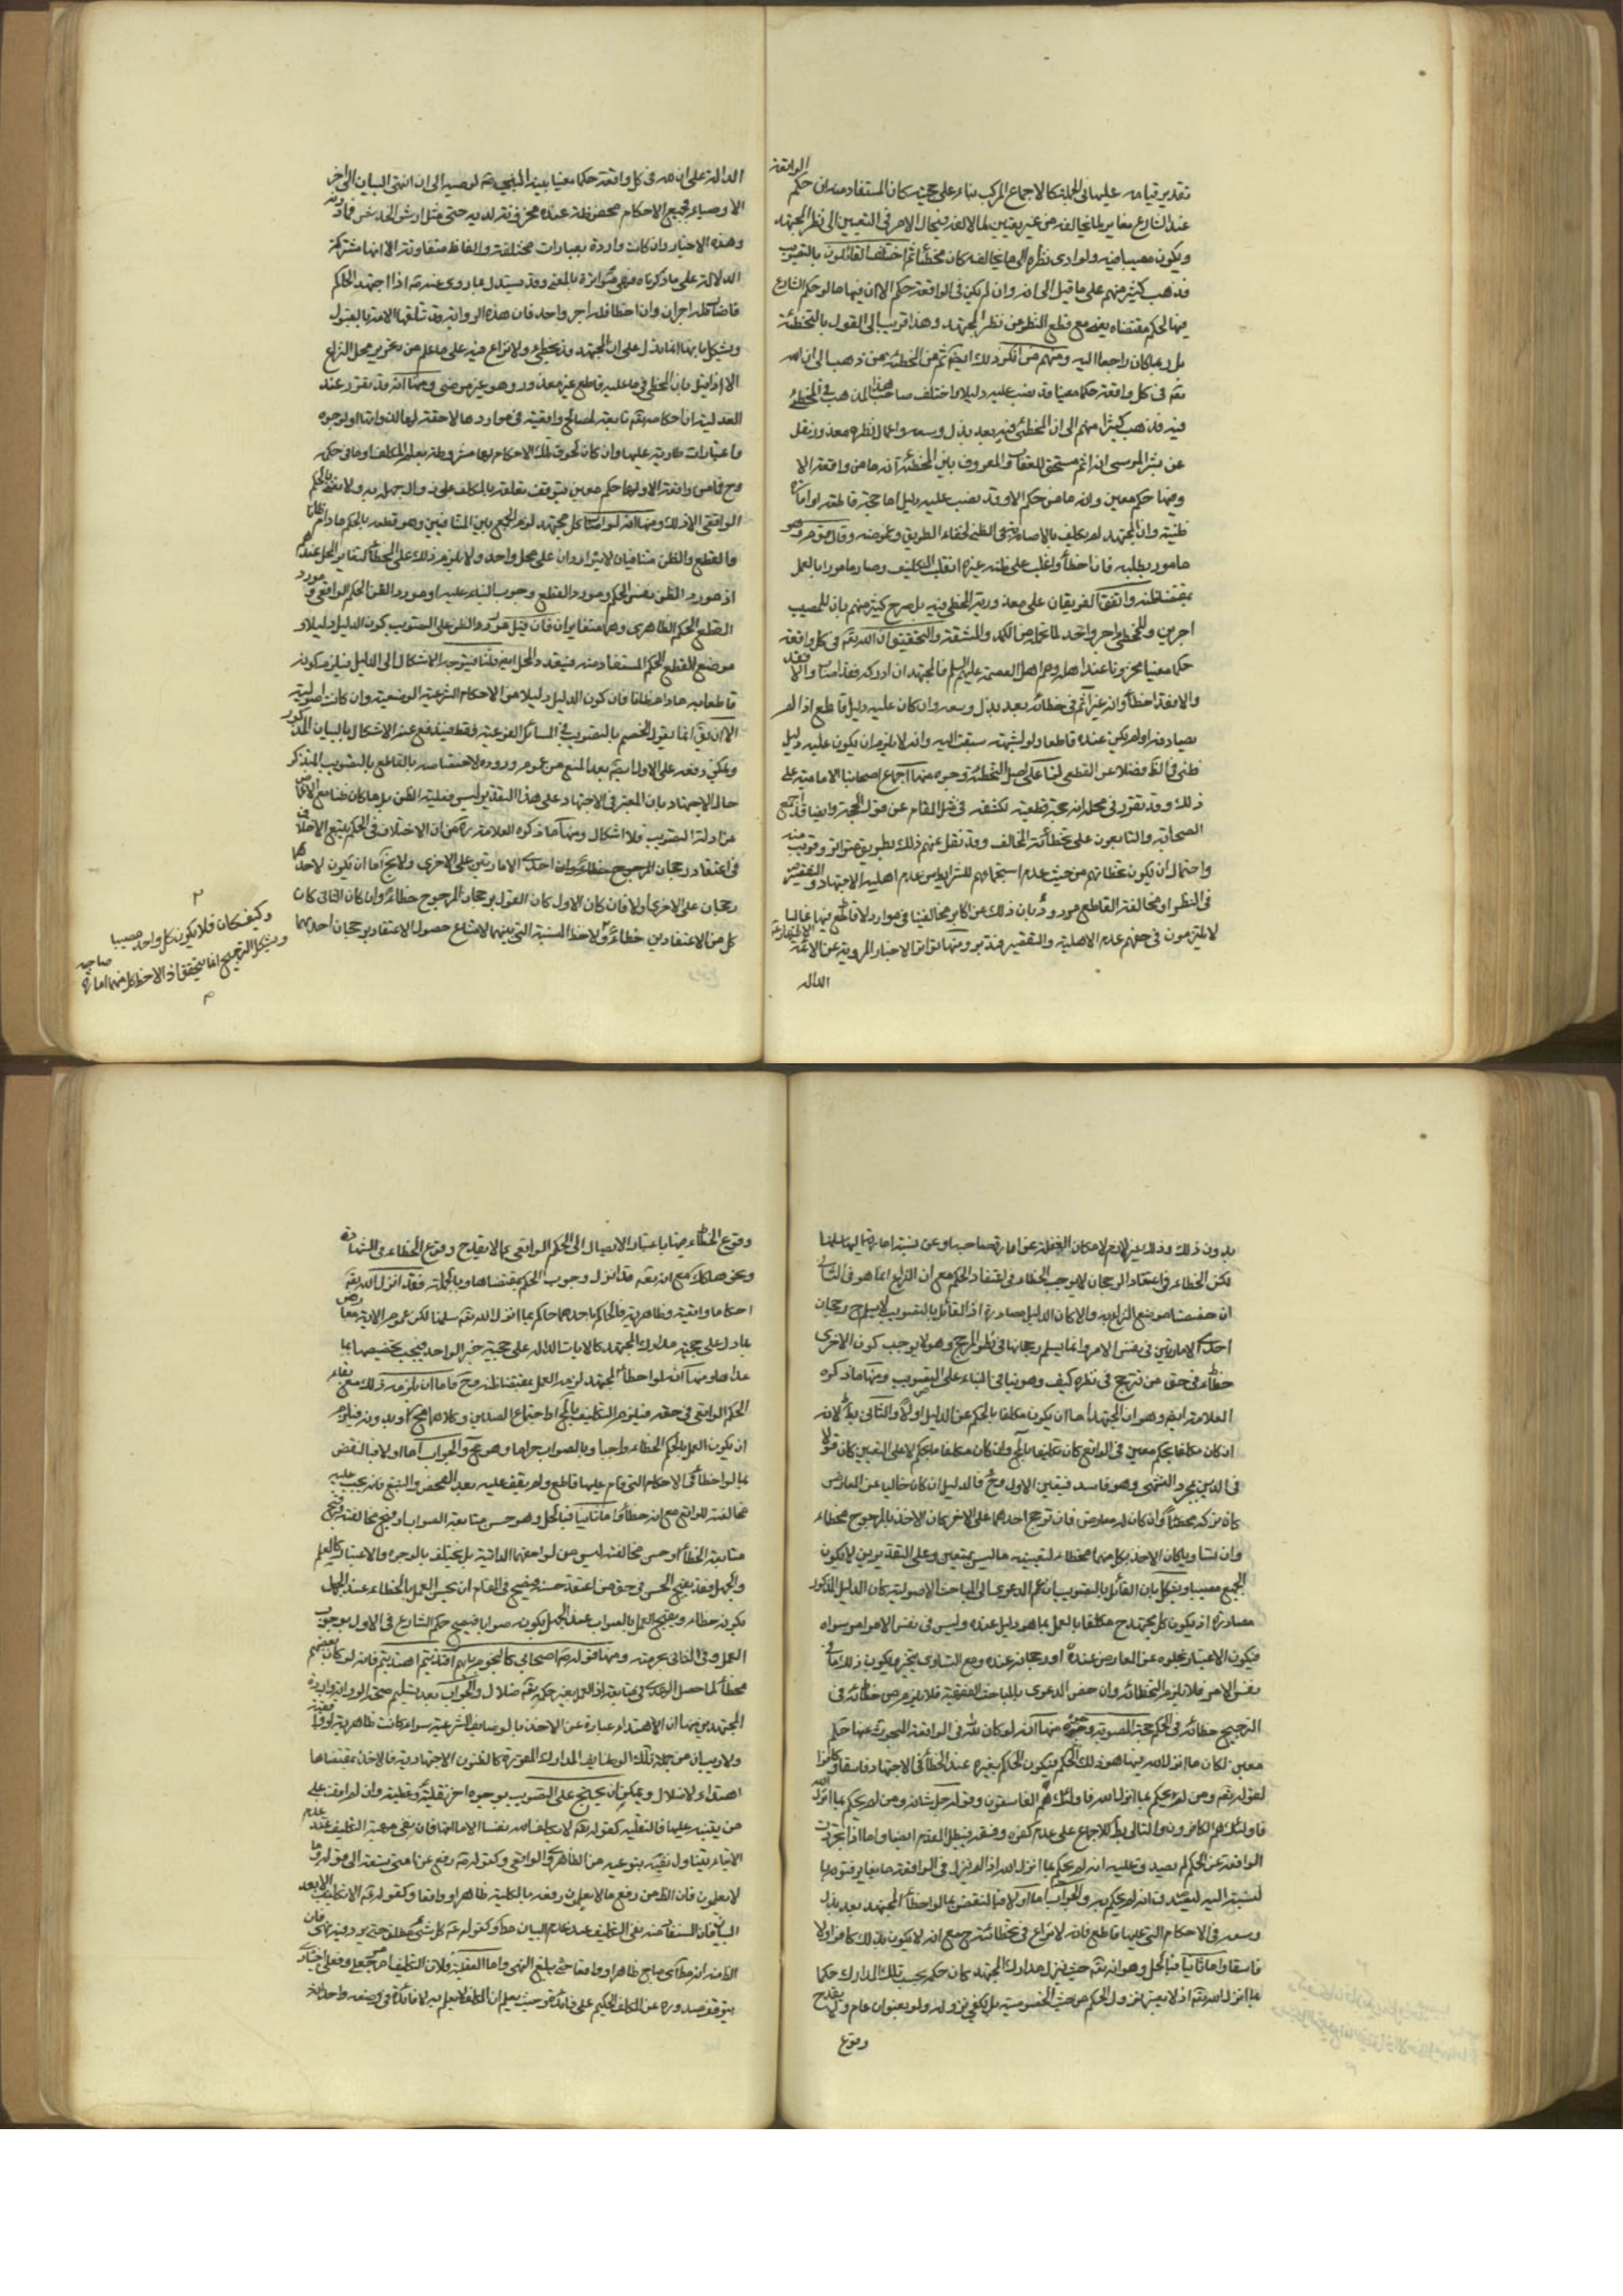 الواقعة
تقدير قيامه عليها في الجملة كالاجماع المركب بناء على حجيته كان المستفاد منه ان حكم
عند الشارع مغاير لما يخالفه من غير تعيين لما لا لغز فيحال الامر في التعيين الى نظر المجتهد
ويكون مصيبا فيه ولو ادى نظره الى ما يخالفه كان مخطئا ثم اختلف القائلون بالتصويب
فذهب كثير منهم على ما قيل الى انه وان لم يكن في الواقعة حكم الا ان فيها ما لو حكم الشارع
فيها لحكم بمقتضاه يعنى مع قطع النظر عن نظر المجتهد وهذا قريب الى القول بالتخطئة
بل ربما كان راجعا اليه ومنهم من انكر ذلك ايضا ثم من المخطئة من ذهب الى ان لله
تعالى في كل واقعة حكما معينا قد نصب عليه دليلا واختلف صاحب هذا المذهب في المخطئ
فيه فذهب كثير منهم الى ان المخطئ فيه بعد بذل وسعه واعمال نظره معذور ونقل
عن بشر المريسي انه اثم مستحق للعقاب والمعروف بين المخطئة انه ما من واقعة الا
وفيها حكم معين وانه ما من حكم الا وقد نصب عليه دليل اما حجة قاطعة او امارة
ظنية وان المجتهد لم يكلف بالاصابة في الظني لخفاء الطريق وغموضه وقال قوم هو
مامور بطلبه فاذا اخطأ وغلب على ظنه غيره انقلب التكليف وصار مامورا بالعمل
بمقتضى ظنه واتفق الفريقان على معذورية المخطي فيه بل صرح كثير منهم بان للمصيب
اجرين وللمخطئ اجر واحد لما تحمل من الكد والمشقة والتحقيق ان لله تعالى في كل واقعة
حكما معينا مخزونا عند اهله وهم اهل العصمة عليهم السلم فالمجتهد ان ادركه فقد اصاب والا
والا فقد اخطأ وانه غير آثم في خطائه بعد بذل وسعه وان كان عليه دليل قاطع اذا لم
يصادفه او لم يكن عنده قاطعا ولو لشبهة سبقت اليه وانه لا يلزم ان يكون عليه دليل
ظني في الظ فضلا عن القطعي لنا على اصل التخطئة وجوه منها اجماع اصحابنا الامامية على
ذلك وقد تقرر في محله انه حجة قطعية لكشفه في مثل المقام عن قول الحجة وايضا قد اجمع
الصحابة والتابعون على تخطئة المخالف وقد نقل عنهم ذلك بطريق متواتر وقريب منه
واحتمال ان يكون تخطئتهم من حيث عدم استجماعهم للشرائط من عدم اهلية الاجتهاد والتقصير
في النظر او مخالفة القاطع مردود بان ذلك من اكابر مخالفينا في موارد لا قاطع فيها غالبا
لا يلتزمون في حقهم عدم الاهلية والتقصير فتدبر ومنها تواتر الاخبار المروية عن الائمة
الدالة
الدالة على ان لله في كل واقعة حكما معينا بينه النبي ص لوصيه الى ان انتهى البيان الى اخر
الاوصياء فجميع الاحكام محفوظة عنده مخزونة لديه حتى مثل ارش الخدش فما دونه
وهذه الاخبار وان كانت واردة بعبارات مختلفة والفاظ متفاوتة الا انها مشتركة
الدلالة على ما ذكرناه فهي متواترة بالمعنى وقد يستدل بما روى عنه ص اذا اجتهد الحاكم
فاصاب فله اجران وان اخطا فله اجر واحد فان هذه الرواية قد تلقتها الامة بالقبول
ويشكل بانها انما تدل على ان المجتهد قد يخطئ ولا نزاع فيه على ما علم من تحرير محل النزاع
الا اذا قيل بان المخطي في ما عليه قاطع غير معذور وهو غير مرضى ومنها انه قد تقرر عند
العدلية ان احكامه تعالى تابعة لمصالح واقعية في مواردها لاحقة لها لذواتها او لوجوه
واعتبارات طارية عليها وان كان لحوق تلك الاحكام لها مشروطة بعلم المكلف او ما في حكمه
وح فما من واقعة الا ولها حكم معين يتوقف تعلقه بالمكلف على ... ولا نعنى بالحكم
الواقعي الا ذلك ومنها انه لو اصاب كل مجتهد لزم الجمع بين المتنافيين وهو قطعه بالحكم ما دام ظانا
فالقطع والظن متنافيان لا يتواردان على محل واحد ولا يلزم ذلك على المخطئة لتغاير المحل عندهم
اذ مورد الظن نفس الحكم ومورد القطع وجوب البناء عليه او مورد الظن الحكم الواقعي ومورد
القطع الحكم الظاهرى وهما متغايران فان قيل مورد الظن على التصويب كون الدليل دليلا و
موضع القطع الحكم المستفاد منه فيتعدد المحل ايضا قلنا فيتوجه الاشكال الى الدليل فيلزم كونه
قاطعا به ما دام ظانا فان كون الدليل دليلا من الاحكام الشرعية الوضعية وان كانت اصولية
الا ان يق انما يقول الخصم بالتصويب في المسائل الفرعية فقط فيندفع عنه الاشكال بالبيان المذكور
ويمكن دفعه على الاول ايضا بعد المنع من عموم وروده لاختصاصه بالقاطع بالتصويب المتذكر
حال الاجتهاد بان المعتبر في الاجتهاد على هذا التقدير ليس فعلية الظن بل ما كان ظنا مع الاغماض
عن ادلة التصويب فلا اشكال ومنها ما ذكره العلامة ره من ان الاختلاف في الحكم يتبع الاختلاف
في اعتقاد رجحان احدى الامارتين على الاخرى ولا يخ اما ان يكون لاحدهما
رجحان على الاخرى اولا فان كان الاول كان القول برجحان المرجوح خطاء وان كان الثاني كان
كل من الاعتقادين خطاء ولاخذ النسبة التي بينهما لامتناع حصول الاعتقاد برجحان احديهما
وكيف كان فلا يكون كل واحد مصيبا
ويشكل الترجيح انما يتحقق اذا لاحظ كل منهما امارة صاحبه
بدون ذلك وذلك غير لازم لامكان الغفلة عن امارة صاحبه او عن نسبة امارته اليها سلمنا
لكن الخطاء في اعتقاد الرجحان لا يوجب الخطاء في اعتقاد الحكم مع ان النزاع انما هو في الثاني
ان خصصنا موضع النزاع به والا كان الدليل مصادرة اذ القائل بالتصويب لا يسلم رجحان
احدى الامارتين في نفس الامر وانما يسلم رجحانها في نظر المرجح وهو لا يوجب كون الاخرى
خطاء في حق من ترجح في نظره كيف وهو ينافي البناء على التصويب ومنها ما ذكره
العلامة ايضا وهو ان المجتهد اما ان يكون مكلفا بالحكم عن الدليل اولا والثاني بط لانه
ان كان مكلفا بحكم معين في الواقع كان تكليفا بالمحال وان كان مكلفا بحكم لا على التعيين كان قولا
في الدين بمجرد التشهي وهو فاسد فيتعين الاول وح فالدليل ان كان خاليا عن المعارض
كان تركه مخطئا وان كان له معارض فان ترجح احدهما على الاخر كان الاخذ بالمرجوح مخطاء
وان تساويا كان الاخذ بكل منهما مخطاء لتعيينه ما ليس بمتعين وعلى التقديرين لا يكون
الجميع مصيبا ويشكل بان القائل بالتصويب ان عمم الدعوى الى المباحث الاصولية كان الدليل المذكور
مصادرة اذ يكون كل مجتهد ح مكلفا بالعمل بما هو دليل عنده وليس في نفس الامر امر سواه
فيكون الاعتبار بخلوه عن المعارض عنده او رجحانه عنده ومع التساوى يتخير فيكون ذلك ما في
نفس الامر فلا يلزم التخطئة وان خص الدعوى بالمباحث الفقهية فلا يلزم من خطائه في
الترجيح خطائه في الحكم حجة المصوبة وجوه منها انه لو كان لله في الواقعة المبحوث عنها حكم
معين لكان ما انزل الله فيها هو ذلك الحكم فيكون الحاكم بغيره عند الخطأ في الاجتهاد فاسقا وكافرا
لقوله تعالى ومن لم يحكم بما انزل الله فاولئك هم الفاسقون وقوله جل شانه ومن لم يحكم بما انزل الله
فاولئك هم الكافرون والتالي بط للاجماع على عدم كفره وفسقه فيبطل المقدم ايضا واما اذا تجردت
الواقعة عن الحكم لم يصدق عليه انه لم يحكم بما انزل الله اذ لم ينزل في الواقعة ما يغاير فتويه
لنسبته اليه ليصدق انه لم يحكم به والجواب اما اولا فبالنقض بما لو اخطأ المجتهد بعد بذل
وسعه في الاحكام التي عليها قاطع فانه لا نزاع في تخطئته ح مع انه لا يكون بذلك كافرا ولا
فاسقا واما ثانيا فبالحل وهو انه تعالى حيث نزل مدارك المجتهد كان حكمه بحسب تلك المدارك حكما
بما انزل الله تعالى اذ لا يعتبر نزول الحكم من حيث الخصوصية بل يكفى نزوله ولو بعنوان عام ولا يقدح
وقوع
وقوع الخطاء فيها باعتبار الايصال الى الحكم الواقعي كما لا يقدح وقوع الخطاء في الشهادة
ونحوها هناك مع انه تعالى قد انزل وجوب الحكم بمقتضاها وبالجملة فقد انزل الله تعالى
احكاما واقعية وظاهرية فالحاكم باحدهما حاكم بما انزل الله تعالى سلمنا لكن عموم الاية معارض
بما دل على حجية مدارك المجتهد كالايات الدالة على حجية خبر الواحد فيجب تخصيصها بما
عداها ومنها انه لو اخطأ المجتهد لزمه العمل بمقتضى ظنه وح فاما ان يلزمه ذلك مع بقاء
الحكم الواقعي في حقه فيلزم التكليف بالمحال او اجتماع الضدين وكلاهما مح او بدونه فيلزم
ان يكون العمل بالحكم الخطاء واجبا وبالصواب حراما وهو مح والجواب اما اولا فبالنقض
بما لو اخطأ في الاحكام التي قام عليها قاطع ولم يقف عليه بعد الفحص والتتبع فانه يجب عليه
مخالفته للواقع مع انه خطأ واما ثانيا فبالحل وهو حسن متابعة الصواب وقبح مخالفته وقبح
متابعة الخطأ او حسن مخالفته ليس من لواحقهما الذاتية بل يختلف بالوجوه والاعتبار كالعلم
والجهل فقد يقبح الحسن في حق من اعتقد حسنه فيصح في المقام ان يحسن العمل بالخطاء عند الجهل
بكونه خطاء ويقبح العمل بالصواب عند الجهل بكونه صوابا فيصح حكم الشارع في الاول بوجوب
العمل وفي الثاني بحرمته ومنها قوله ص اصحابي كالنجوم بايهم اقتديتم اهتديتم فانه لو كان بعضهم
مخطأ لما حصل الهدى في متابعته اذ العمل بغير حكمه تعالى ضلال والجواب بعد تسليم صحة الرواية
المجتهدين منها ان الاهتداء عبارة عن الاخذ بالوظايف الشرعية سواء كانت ظاهرية او واقعية
ولا ريب ان من جملة تلك الوظايف المدارك المقررة كالظنون الاجتهادية فالاخذ بمقتضاها
اهتداء لا ضلال ويمكن ان يحتج على التصويب بوجوه اخر نقلية وعقلية وان لم اقف على
من يتنبه عليها فالنقلية كقوله تعالى لا يكلف الله نفسا الا ما اتاها فان نفي التكليف عند عدم
الايتاء يتناول نفيه بنوعيه من الظاهرى والواقعي وكقوله ص رفع عن امتى تسعة الى قوله وما
لا يعلمون فان الظ من رفع ما لا يعلمون رفعه بالكلية ظاهرا وواقعا وكقوله ع لا تكليف الا بعد
البيان فان المستفاد منه نفى التكليف عند عدم البيان مطلقا وكقوله ع كل شئ مطلق حتى يرد فيه نهى فان
الظ منه انه مطلق اى مباح ظاهرا وواقعا حتى يبلغ النهى واما العقلية فلان التكليف امر جعلي وفعل اختيارى
يتوقف صدوره عن المكلف الحكيم على فائدة وحيث يعلم ان المكلف لا يعلم به لا فائدة في وضعه واحداثه